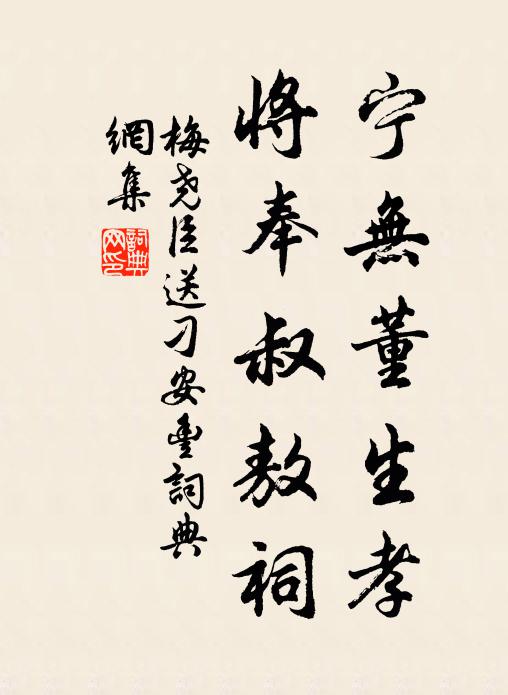 宁無董生孝
將奉叔敖祠
梅尧臣送刁安豊詞典
網集
詞典
网印